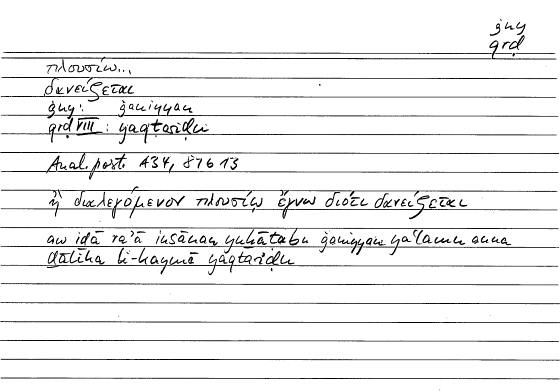 ġny
qrḍ
πλουσίῳ...
δανείζεται
ġny: ġanīyan
qrḍ VIII: yaqtariḍu
Anal. post. A34, 89b13
ἢ διαλεγόμενον πλουσίῳ ἔγνω διότι δανείζεται
aw iḏā ra'ā insānan yuḫāṭabu ġanīyan ya'lamu anna
ḏālika li-kaymā yaqtariḍu